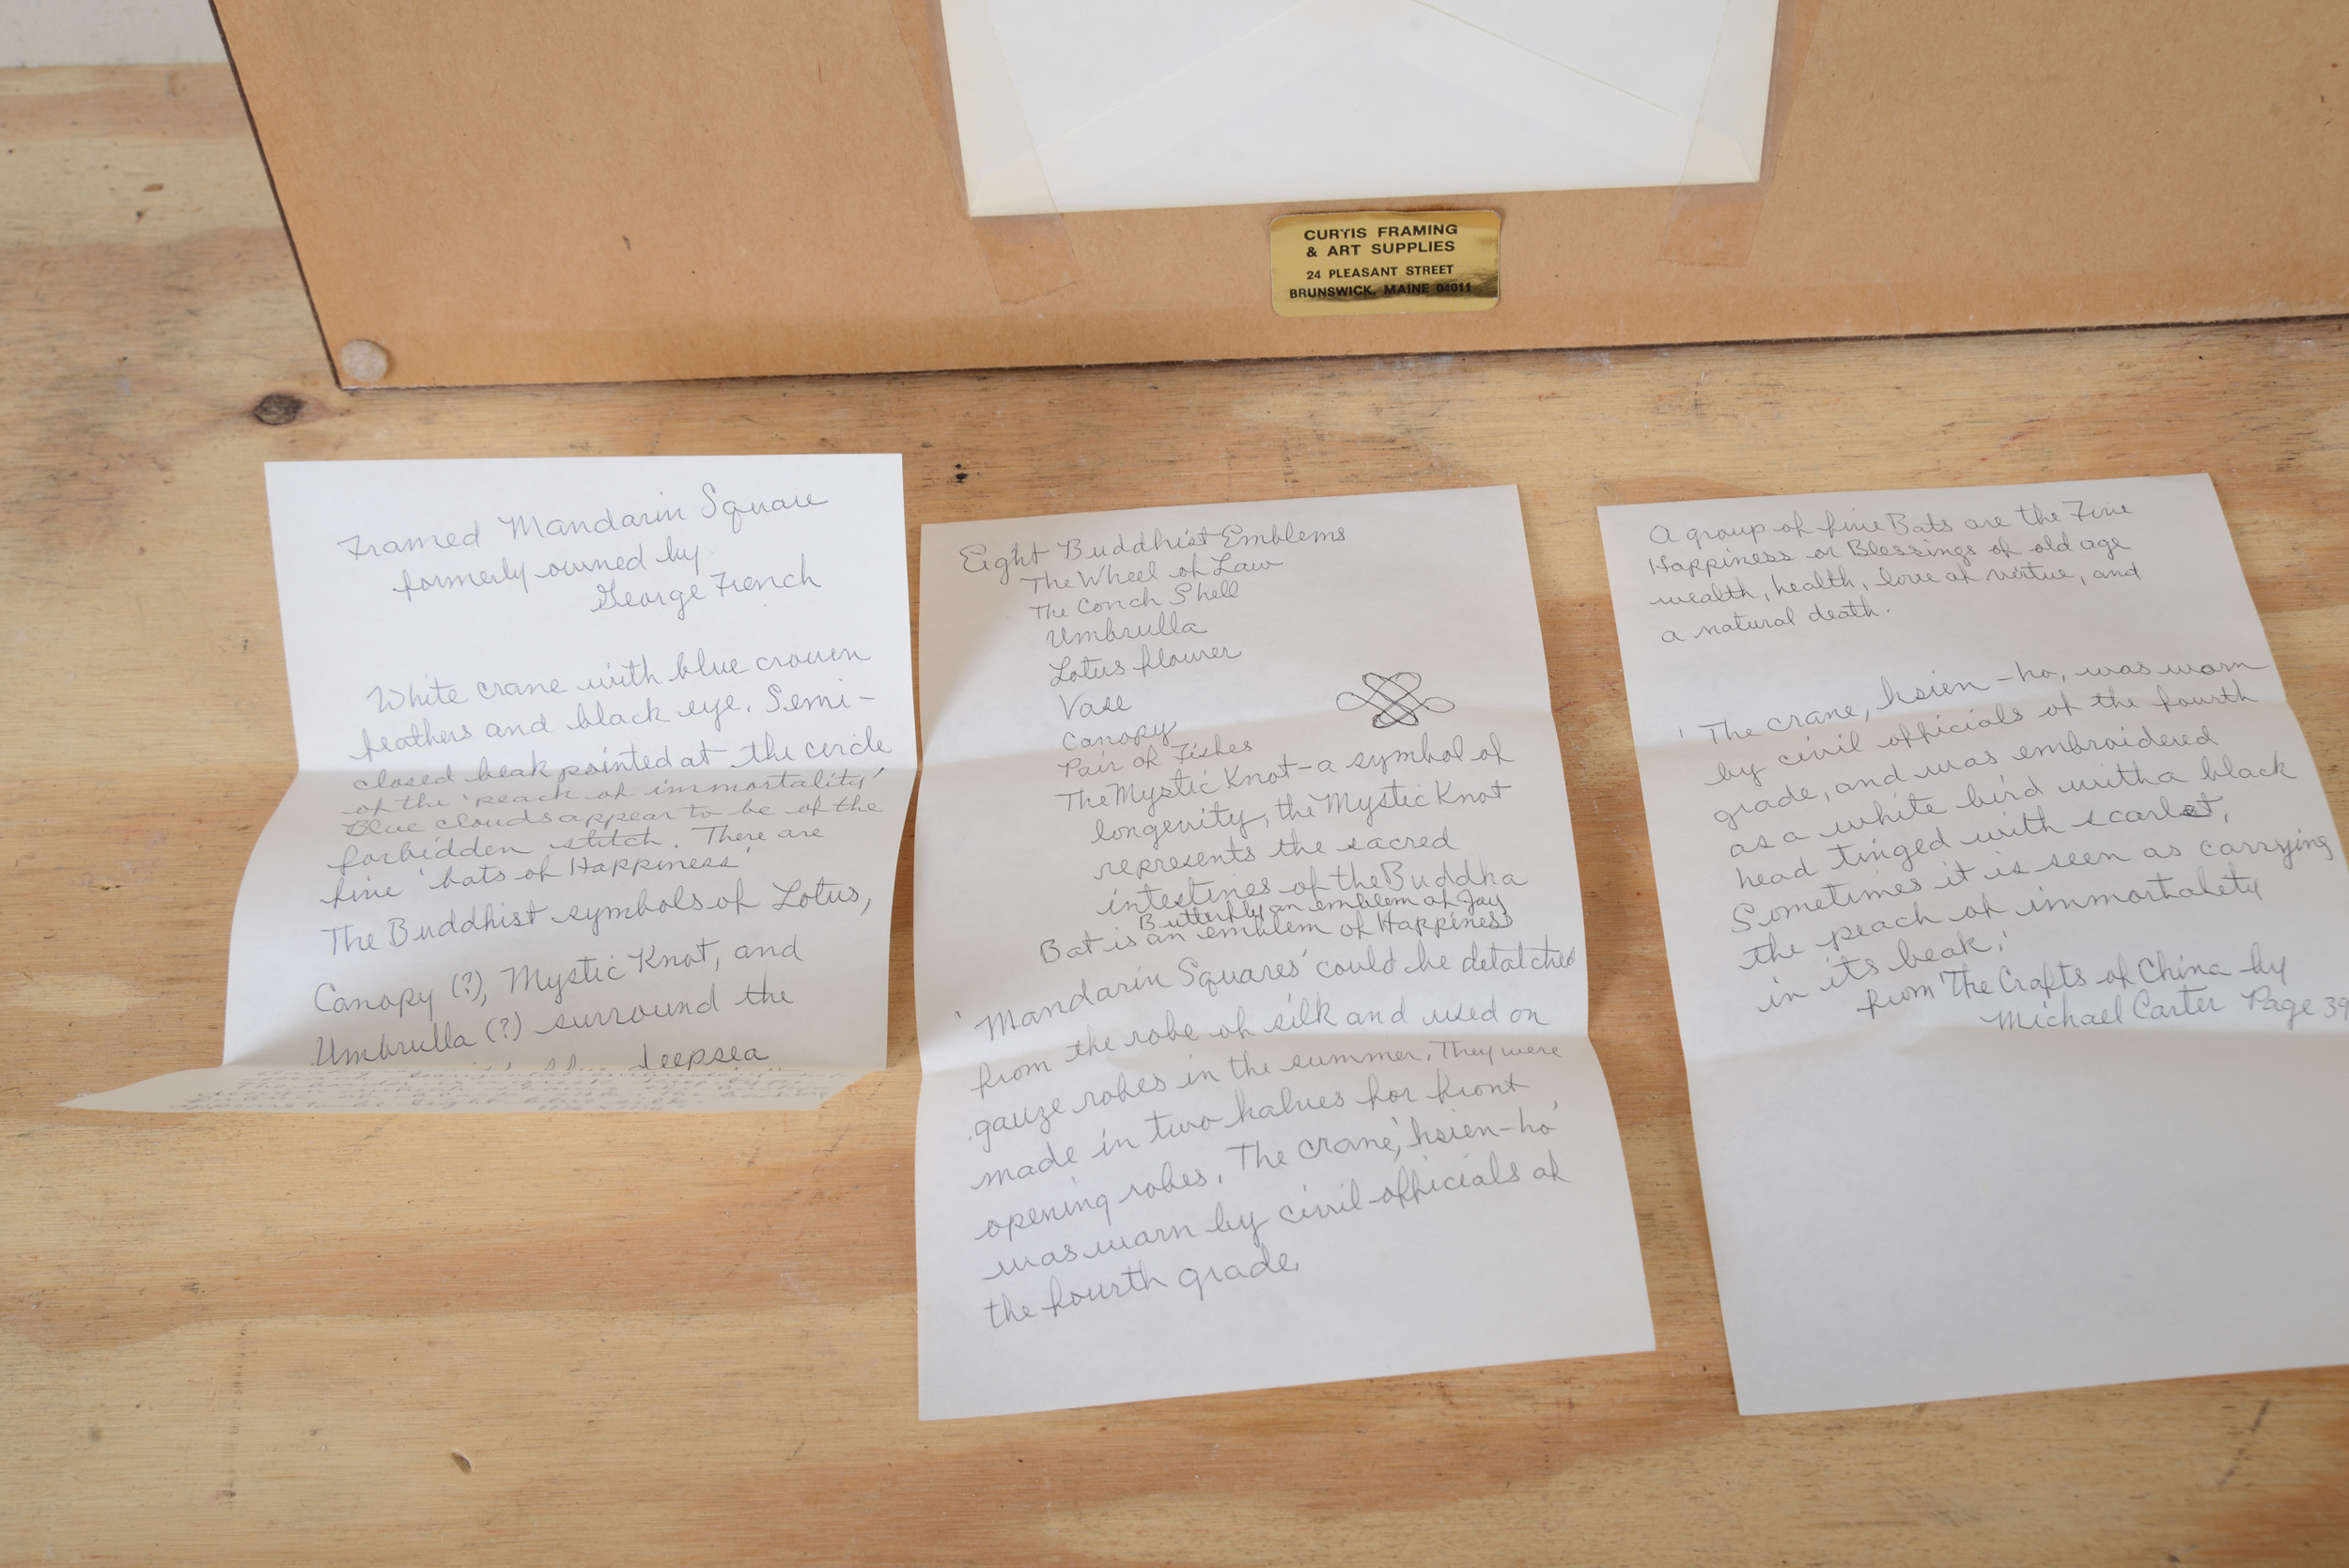 CURTIS FRAMING
& ART SUPPLIES
24 PLEASANT STREET
BRUNSWICK, MAINE 04011
Framed Mandarin Square
formerly owned by
George French
White crane with blue crown
feathers and black eye. Semi-
closed beak pointed at the circle
of the 'peach of immortality'
Blue clouds appear to be of the
forbidden stitch. There are
five 'bats of Happiness'
The Buddhist symbols of Lotus,
Canopy (?), Mystic Knot, and
Umbrulla (?) surround the
deepsea
Eight Buddhist Emblems
The Wheel of Law
The Conch Shell
Umbrulla
Lotus flower
Vase
Canopy
Pair of Fishes
The Mystic Knot - a symbol of
longevity, the Mystic Knot
represents the sacred
intestines of the Buddha
Butterfly an emblem of Joy
Bat is an emblem of Happiness
'Mandarin Squares' could be detatched
from the robe of silk and used on
gauze robes in the summer. They were
made in two halves for front
opening robes. The crane, 'hsien-ho'
was warn by civil officials of
the fourth grade.
A group of five Bats are the Five
Happiness or Blessings of old age
wealth, health, love of virtue, and
a natural death.
'The crane, hsien-ho, was warn
by civil officials of the fourth
grade, and was embroidered
as a white bird with a black
head tinged with scarlet,
Sometimes it is seen as carrying
the peach of immortalety
in its beak.'
from 'The Crafts of China by
Michael Carter Page 39